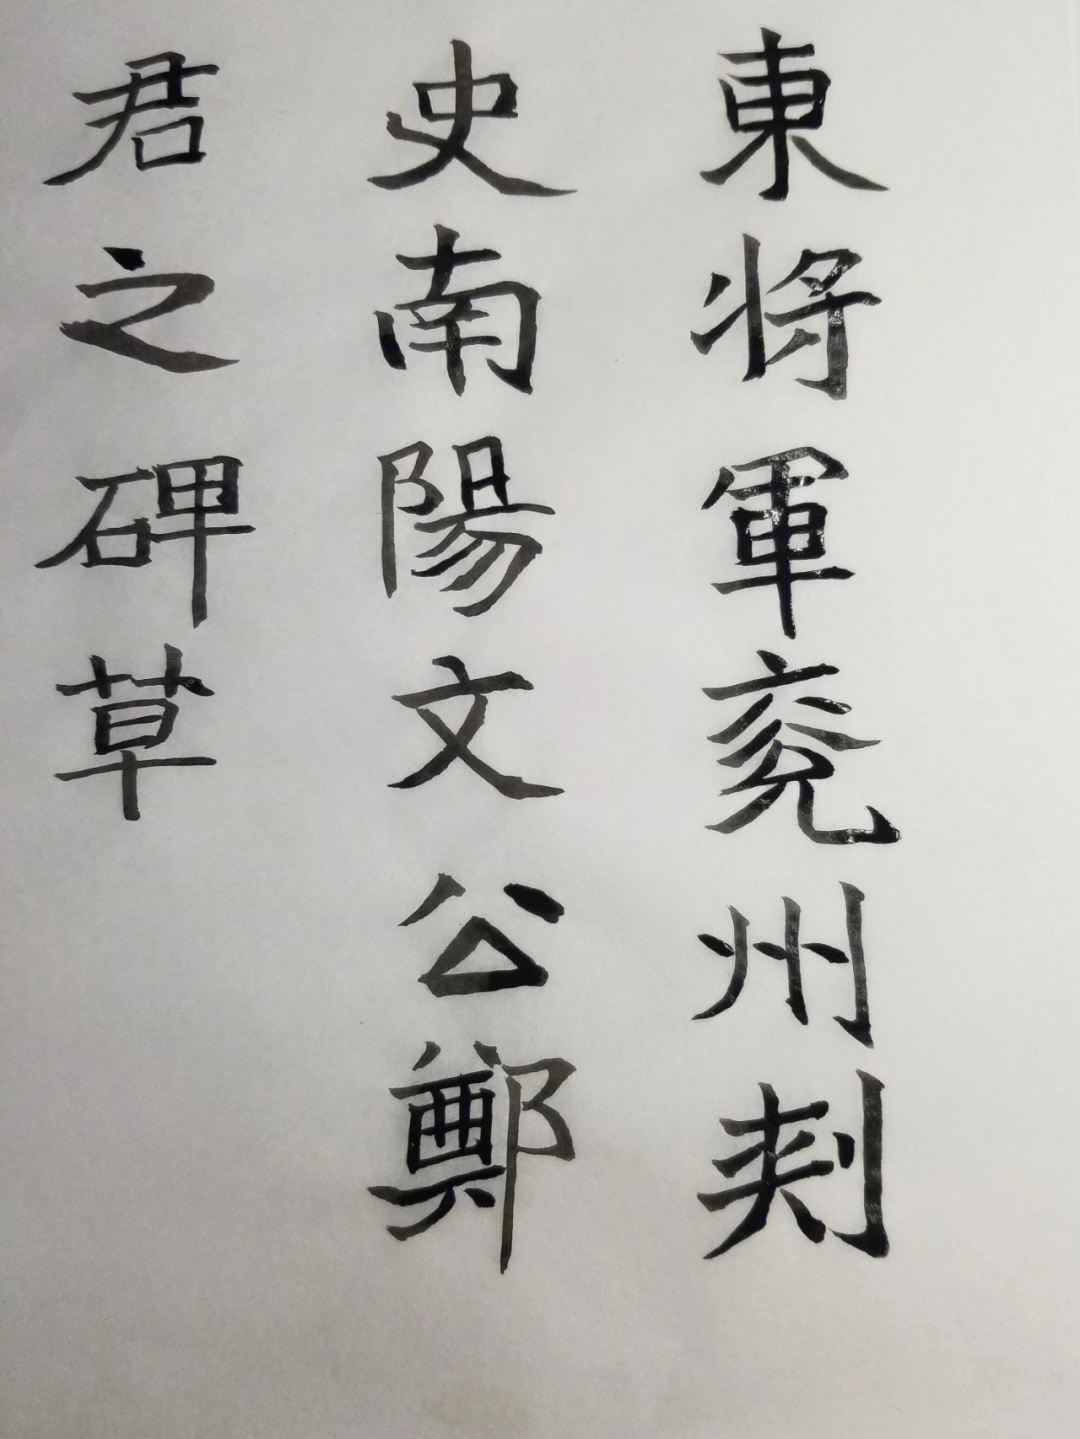 東将軍兖州刾
史南陽文公鄭
君之碑草